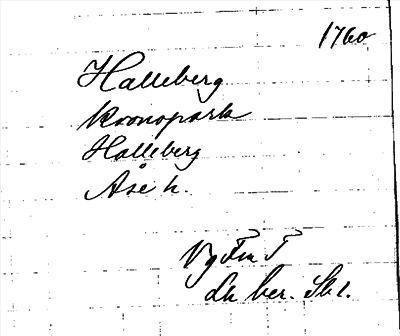 1760
Halleberg
Kronopark
Halleberg
Åse h.
Vg Fm T
Lh ber. Sk 1.